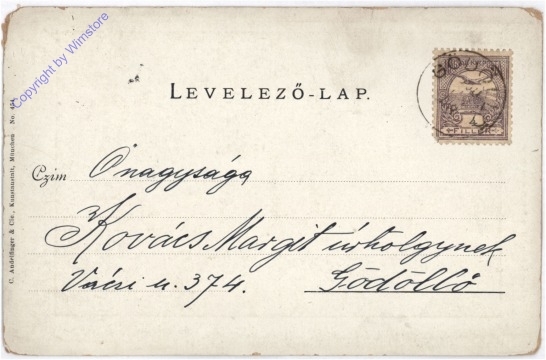 Copyright by Wimstore
LEVELEZŐ-LAP.
Czim Önagysága
Kovács Margit úrhölgynek
Váczi u. 374. Gödöllő
C. Andelfinger & Cie., Kunstanstalt, München No. 434
FILLÉR